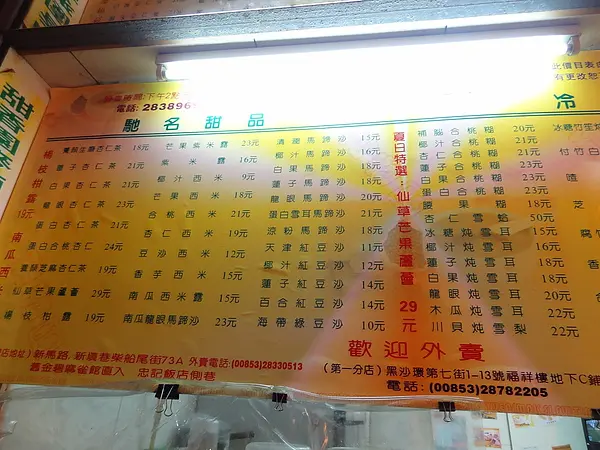 甜香園
下午2點
電話: 283896
此價目表
有更改恕
馳名甜品
冷
楊枝柑露 19元
南瓜西米
鴛鴦生磨杏仁茶 18元
蓮子杏仁茶 21元
白果杏仁茶 21元
龍眼杏仁茶 23元
蛋白杏仁茶 21元
蛋白合桃杏仁 24元
芝麻杏仁茶 19元
仙草芒果蘆薈 29元
楊枝柑露 19元
芒果紫米露 23元
紫米露 16元
椰汁西米 9元
芒果西米 18元
合桃西米 21元
杏仁西米 19元
豆沙西米 12元
香芋西米 15元
南瓜西米露 15元
南瓜龍眼馬蹄沙 23元
清潤馬蹄沙 15元
椰汁馬蹄沙 16元
白果馬蹄沙 18元
蓮子馬蹄沙 18元
龍眼馬蹄沙 20元
蛋白雪耳馬蹄沙 21元
涼粉馬蹄沙 18元
天津紅豆沙 11元
椰汁紅豆沙 12元
蓮子紅豆沙 14元
百合紅豆沙 14元
海帶綠豆沙 10元
夏日特選：仙草芒果蘆薈 29元
補腦合桃糊 20元
椰汁合桃糊 21元
杏仁合桃糊 21元
蓮子合桃糊 23元
白果合桃糊 23元
蛋白合桃糊 23元
腰果糊 18元
杏仁雪蛤 50元
冰糖炖雪耳 15元
椰汁炖雪耳 16元
蓮子炖雪耳 18元
白果炖雪耳 18元
龍眼炖雪耳 20元
木瓜炖雪耳 22元
川貝炖雪梨 22元
冰糖竹笙炖
付竹白
喳
芝
腐
香
歡迎外賣
新馬路．新廣巷柴船尾街73A 外賣電話:(00853)28330513
舊金碧麻雀館直入 忠記飯店側巷
(第一分店) 黑沙環第七街1-13號福祥樓地下C鋪
電話：(00853)28782205